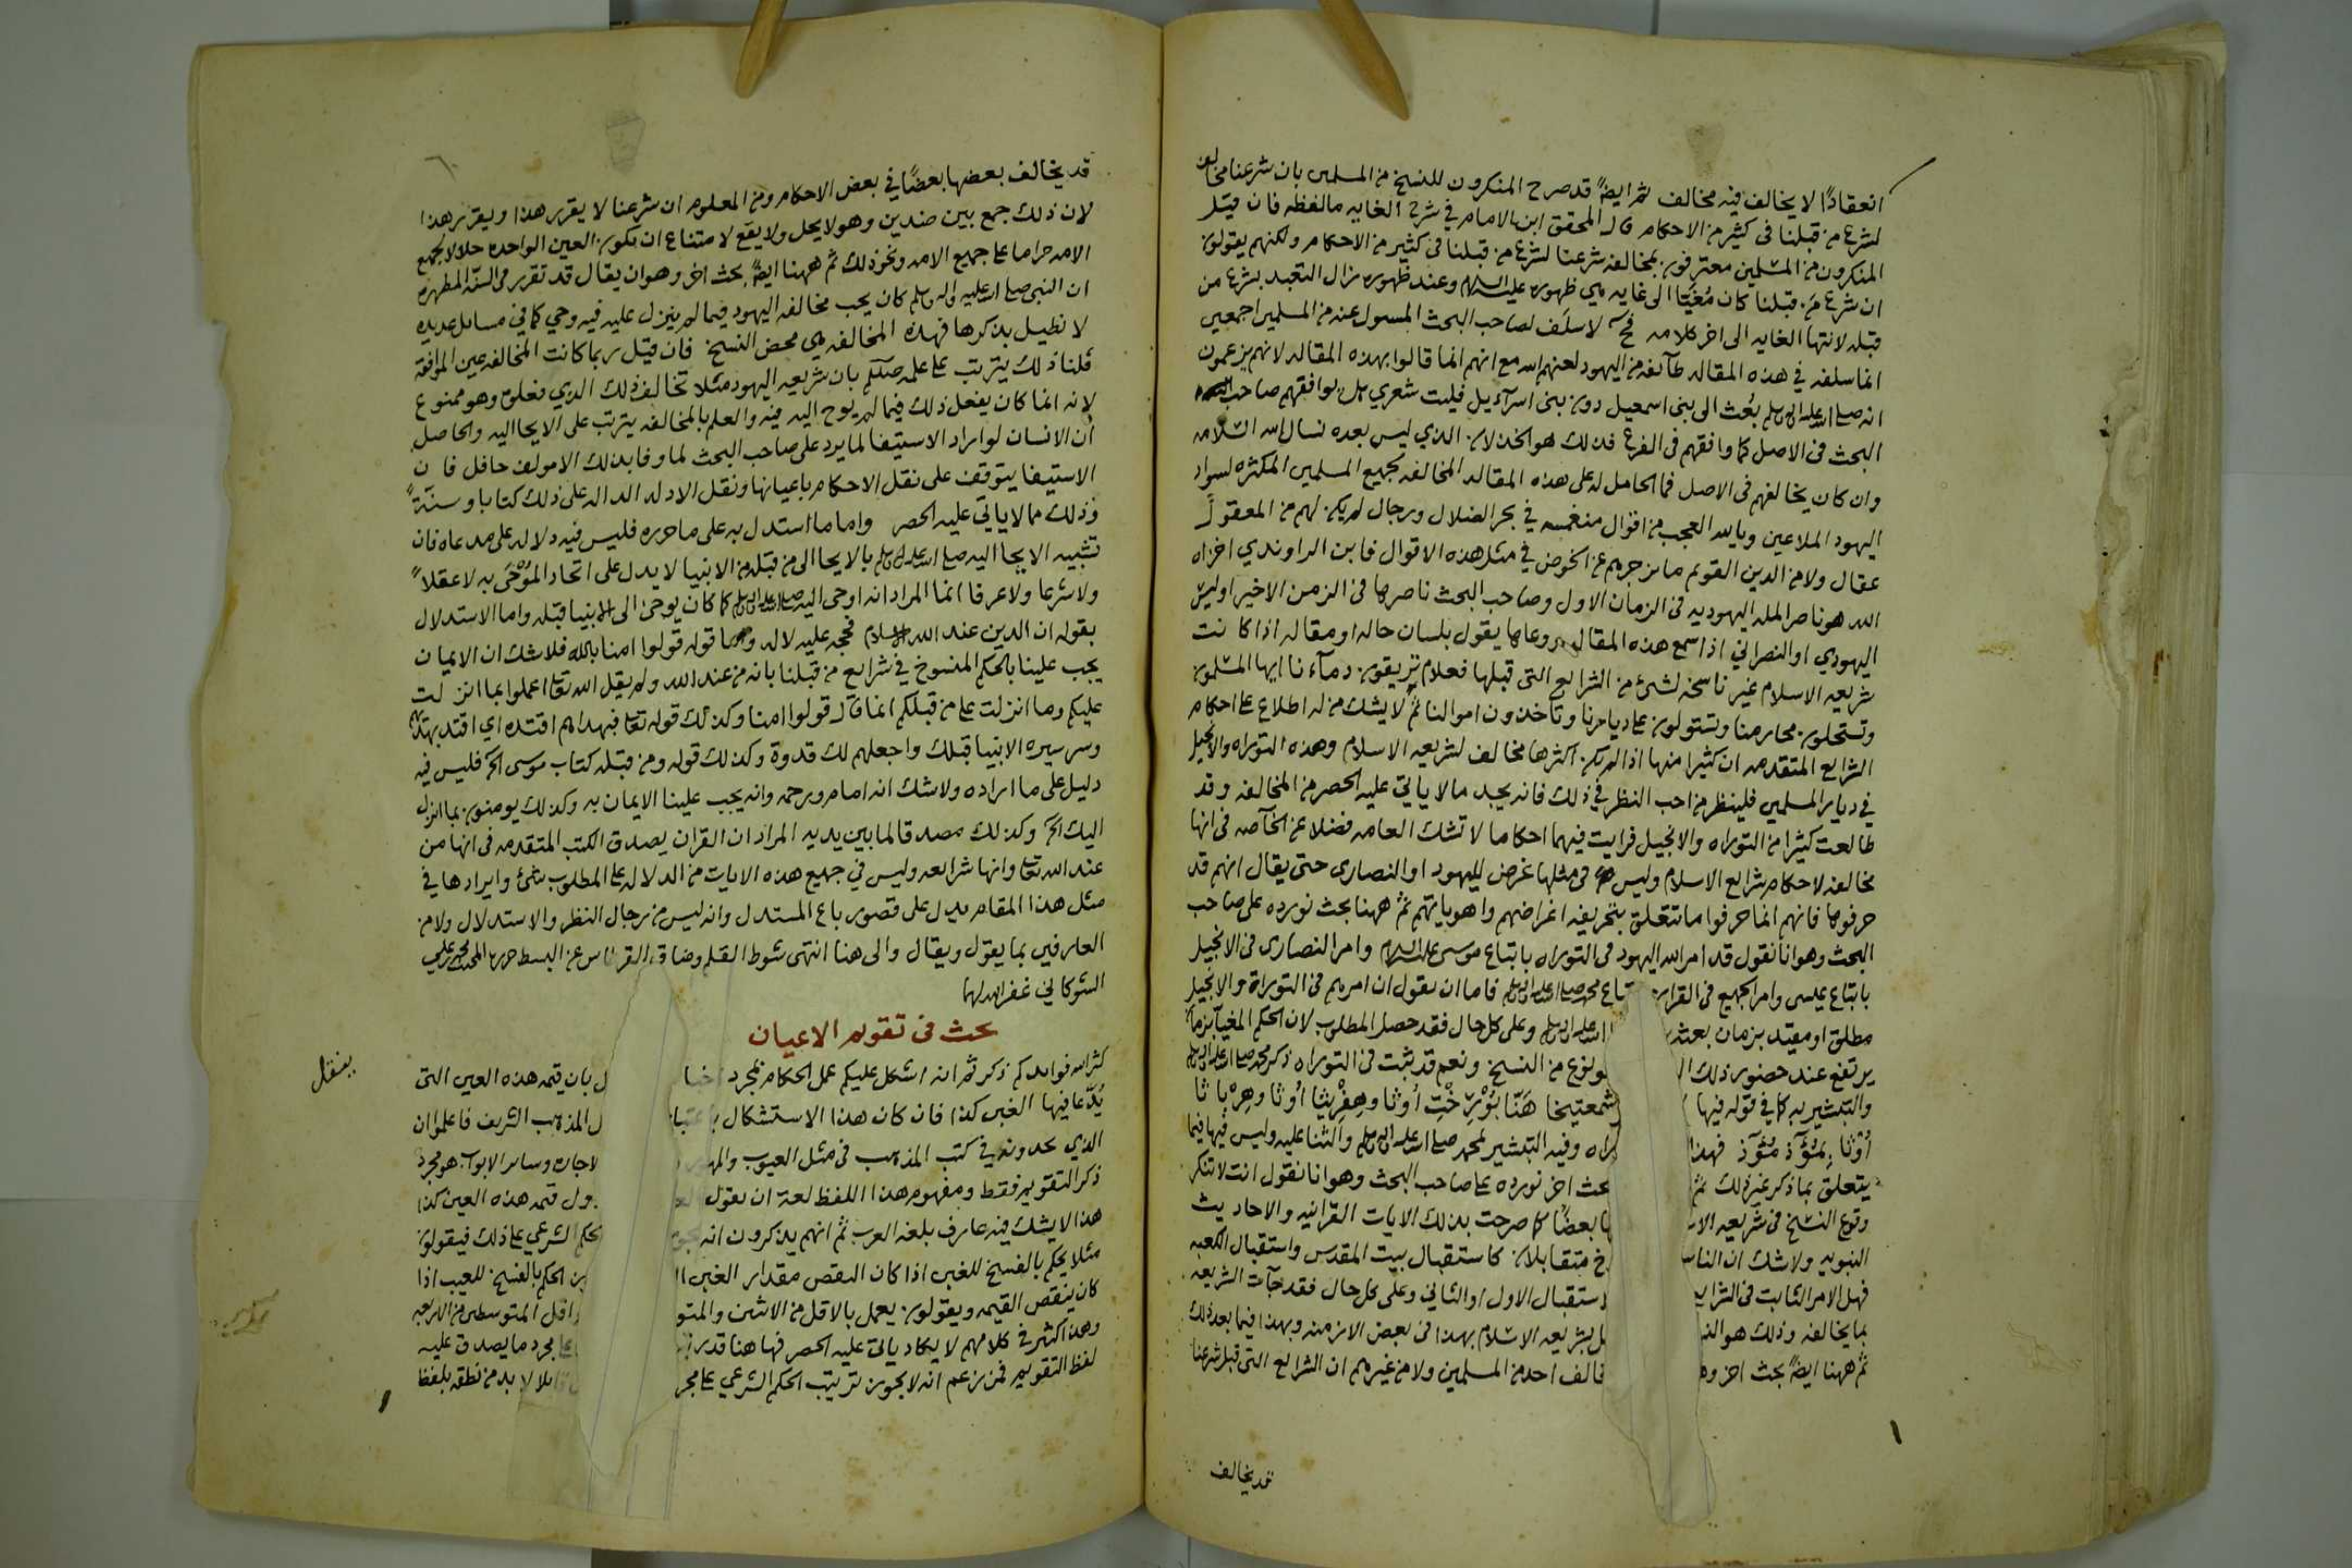 انعقادًا لا يخالف فيه مخالف ثم ايضًا قد صرح المنكرون للنسخ من المسلمين بان شرعنا مخالف
لشرع من قبلنا فى كثير من الاحكام قال المحقق ابن الامام في شرح الغايه مالفظه فان قيل
المنكرون من المسلمين معترفون بمخالفة شرعنا لشرع من قبلنا فى كثير من الاحكام ولكنهم يقولون
ان شرع من قبلنا كان مُغَيّا الى غايه هي ظهوره عليه السلام وعند ظهوره زال التعبد بشرع من
قبله لانتها الغايه الى اخر كلامه فح لا سلف لصاحب البحث المسول عنه من المسلمين اجمعين
انما سلفه في هذه المقاله طآئفه من اليهود لعنهم الله مع انهم انما قالوا بهذه المقاله لانهم يزعمون
انه صلى الله عليه واله وسلم بُعث الى بنى اسمعيل دون بنى اسرآءيل فليت شعري هل يوافقهم صاحب
البحث فى الاصل كما وافقهم فى الفرع فذلك هو الخذلان الذي ليس بعده نسال الله السلامه
وان كان يخالفهم فى الاصل فما الحامل له على هذه المقاله المخالفه لجميع المسلمين المكثره لسواد
اليهود الملاعين ويالله العجب من اقوال منغمسه في بحر الضلال ورجال لم يكن لهم من المعقول
عقال ولا من الدين القويم ما يزجرهم عن الخوض في مثل هذه الاقوال فابن الراوندي اخزاه
الله هو ناصر المله اليهوديه فى الزمان الاول وصاحب البحث ناصرها فى الزمن الاخير اوليس
اليهودي او النصراني اذا سمع هذه المقاله ووعاها يقول بلسان حاله او مقاله اذا كانت
شريعه الاسلام غير ناسخه لشئ من الشرايع التى قبلها فعلام تريقون دمآءنا ايها المسلمون
وتستحلون محارمنا وتستولون على ديارنا وتاخذون اموالنا ثم لا يشك من له اطلاع على احكام
الشرايع المتقدمه ان كثيرا منها اذا لم يكن اكثرها مخالف لشريعه الاسلام وهذه التوراه والانجيل
في ديار المسلمين فلينظر من احب النظر في ذلك فانه يجد مالا ياتي عليه الحصر من المخالفه وقد
طالعت كثيرا من التوراه والانجيل فرايت فيهما احكاما لا تشك العامه فضلا عن الخآصه فى انها
مخالفه لاحكام شرايع الاسلام وليس فى مثلها غرض لليهود او النصارى حتى يقال انهم قد
حرفوها فانهم انما حرفوا ما تتعلق بتحريفه اغراضهم واهوياتهم ثم ههنا بحث نورده على صاحب
البحث وهو انا نقول قد امر الله اليهود فى التوراه باتباع موسى عليه السلام وامر النصارى فى الانجيل
باتباع عيسى وامر الجميع فى القران باتباع محمد صلى الله عليه واله وسلم فاما ان يقول ان امرهم فى التوراة والانجيل
مطلق او مقيد بزمان بعثه الله عليه واله وسلم وعلى كل حال فقد حصل المطلوب لان الحكم المغيا بزمان
يرتفع عند حضور ذلك ا ونوع من النسخ ونعم قد ثبت فى التوراه ذكر محمد صلى الله عليه واله وسلم
والتبشير به كما في قوله فيها شمعتيخا هَنّا بَوْرَخْتِ أُوثا وهِفْريثا أوثا وهِرْباثا
أوثا بِمَؤْذ مَؤْذ فهذا راه وفيه التبشير لمحمد صلى الله عليه واله وسلم والثنا عليه وليس فيها فيما
يتعلق بما ذكر غير ذلك ثم بحث اخر نورده على صاحب البحث وهو انا نقول انت لا تنكر
وقوع النسخ فى شريعه الا ها بعضًا كما صرحت بذلك الايات القرانيه والاحاديث
النبويه ولا شك ان الناس خ متقابلان كاستقبال بيت المقدس واستقبال الكعبه
فهل الامر الثابت فى الشرايع استقبال الاول او الثاني وعلى كل حال فقد جآت الشريعه
بما يخالفه وذلك هو الن ل بشريعه الاسلام بهذا فى بعض الازمنه وبهذا فيما بعد ذلك
ثم ههنا ايضًا بحث اخر وهو خالف احد من المسلمين ولا من غيرهم ان الشرايع التى قبل شرعنا
قد يخالف
قد يخالف بعضها بعضًا في بعض الاحكام ومن المعلوم ان شرعنا لا يقرر هذا ويقرر هذا
لان ذلك جمع بين ضدين وهو لا يحل ولا يقع لامتناع ان تكون العين الواحده حلالا لجميع
الامه حراما على جميع الامه ونحو ذلك ثم ههنا ايضًا بحث اخر وهو ان يقال قد تقرر فى السنه المطهره
ان النبى صلى الله عليه واله وسلم كان يحب مخالفه اليهود فيما لم ينزل عليه فيه وحي كما في مسائل عديده
لا نطيل بذكرها فهذه المخالفه هي محض النسخ فان قيل ربما كانت المخالفه عين الموافقه
قلنا ذلك يترتب على علمه صللم بان شريعه اليهود مثلا تخالف ذلك الذي فعله وهو ممنوع
لانه انما كان يفعل ذلك فيما لم يوح اليه فيه والعلم بالمخالفه يترتب على الايحا اليه والحاصل
ان الانسان لو اراد الاستيفا لما يرد على صاحب البحث لما وفا بذلك الا مولف حافل فان
الاستيفا يتوقف على نقل الاحكام باعيانها ونقل الادله الداله على ذلك كتابا وسنةً
وذلك مما لا ياتي عليه الحصر واما ما استدل به على ما حرره فليس فيه دلاله على مدعاه فان
تشبيه الايحا اليه صلى الله عليه واله وسلم بالايحا الى من قبله من الانبيا لا يدل على اتحاد المُوْحَى به لا عقلاً
ولا شرعا ولا عرفا انما المراد انه اوحى اليه صلى الله عليه واله وسلم كما كان يوحى الى الانبيا قبله واما الاستدلال
بقوله ان الدين عند الله الاسلام فحجه عليه لا له واما قوله قولوا امنا بالله فلا شك ان الايمان
يجب علينا بالحكم المنسوخ في شرايع من قبلنا بانه من عند الله ولم يقل الله تعا اعملوا بما انزلت
عليكم وما انزلت على من قبلكم انما قال قولوا امنا وكذلك قوله تعا فبهداهم اقتده اي اقتد بهديهم
وسر سيره الانبيا قبلك واجعلهم لك قدوة وكذلك قوله ومن قبله كتاب موسى الخ فليس فيه
دليل على ما اراده ولا شك انه امام ورحمه وانه يجب علينا الايمان به وكذلك يومنون بما انزل
اليك الخ وكذلك مصدقا لما بين يديه المراد ان القران يصدق الكتب المتقدمه فى انها من
عند الله تعا وانها شرايعه وليس في جميع هذه الايات من الدلاله على المطلوب شئ وايرادها في
مثل هذا المقام يدل على قصور باع المستدل وانه ليس من رجال النظر والاستدلال ولا من
العارفين بما يقول ويقال والى هنا انتهى شوط القلم وضاق القرطاس عن البسط حرره المجيب محمد بن علي
الشوكاني غفر الله لهما
بحث فى تقويم الاعيان
كثر الله فوايدكم ذكرتم انه اشكل عليكم عمل الحكام بمجرد اخبا ل بان قيمه هذه العين التى
يُدّعا فيها الغبن كذا فان كان هذا الاستشكال باعتبار ل المذهب الشريف فاعلموا ان
الذي يجدونه في كتب المذهب فى مثل العيوب والمه لاجات وساير الابواب هو مجرد
ذكر التقويم فقط ومفهوم هذا اللفظ لغة ان يقول العد ول قيمه هذه العين كذا
هذا لا يشك فيه عارف بلغه العرب ثم انهم يذكرون انه يجو لحكم الشرعي على ذلك فيقولون
مثلا يحكم بالفسخ للغبن اذا كان النقص مقدار الغبن ا ن الحكم بالفسخ للعيب اذا
كان ينقص القيمه ويقولون يعمل بالاقل من الاثنين والمتو واقل المتوسطين من الاربعه
وهذا كثير في كلامهم لا يكاد ياتي عليه الحصر فها هنا قد ر على مجرد ما يصدق عليه
لفظ التقويم فمن زعم انه لا يجوز ترتيب الحكم الشرعي على مجر لا بد من نطقه بلفظ
ينقل